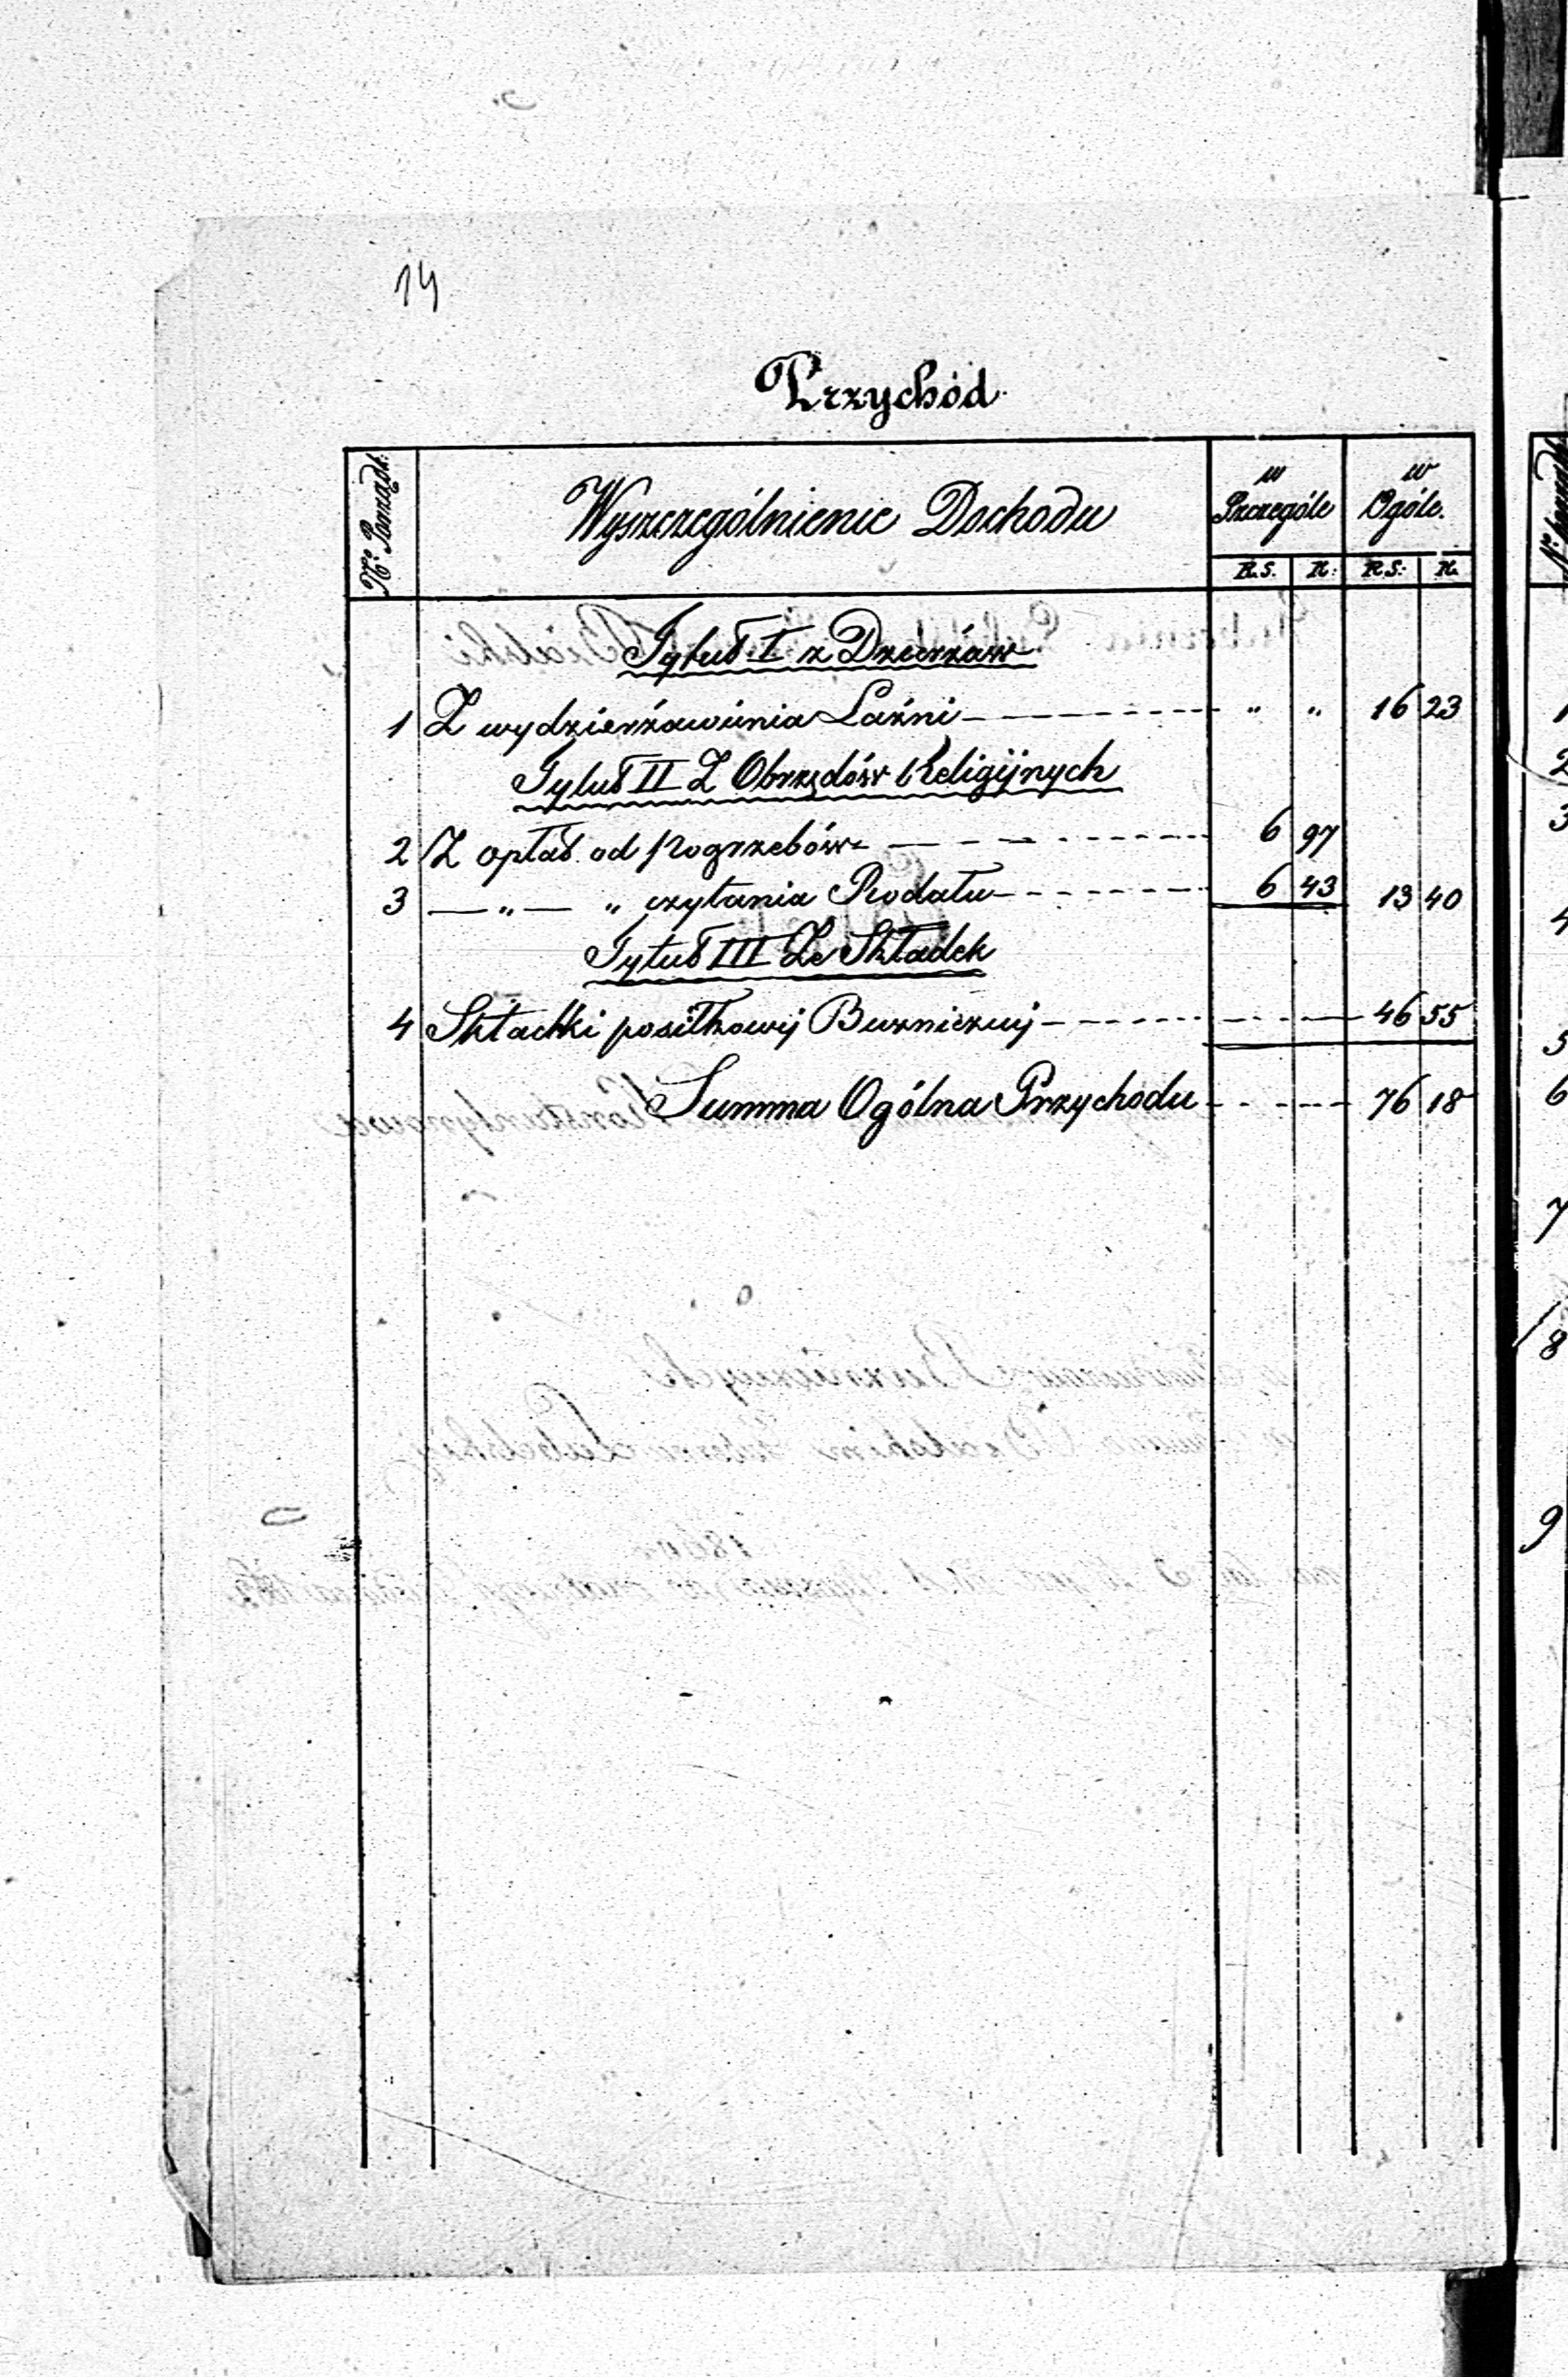 14
Przychód
No Porządk.
Wyszczególnienie Dochodu
w Szczególe
w Ogóle.
R.S. K: R.S: K.
Tytuł I z Dzierżaw
1 Z wydzierżawienia Łaźni — " " 16 23
Tytuł II Z Obrzędów Religijnych
2 Z opłat od Pogrzebów — 6 97
3 — " — " czytania Rodału — 6 43 13 40
Tytuł III Ze Składek
4 Składki posiłkowej Bużniczej — 46 55
Summa Ogólna Przychodu — 76 18